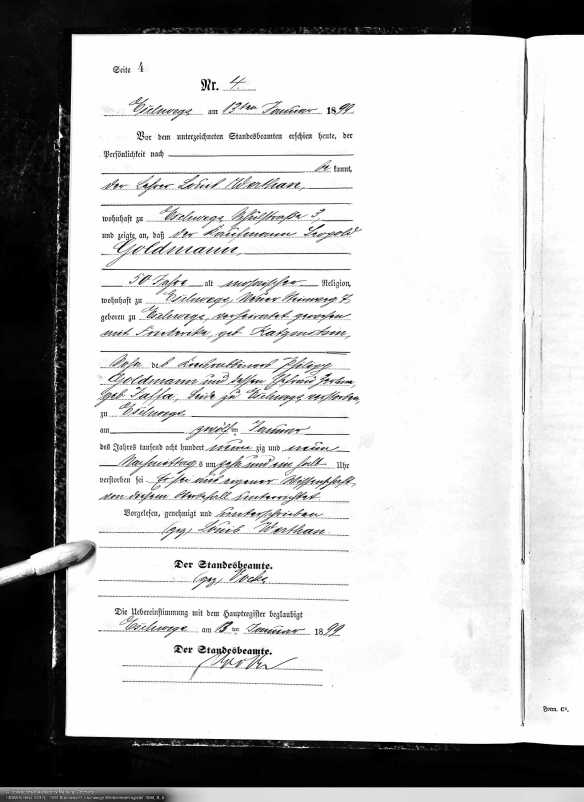 Seite 4
Nr. 4.
Eschwege am 13ten Januar 1899.
Vor dem unterzeichneten Standesbeamten erschien heute, der
Persönlichkeit nach
be kannt,
der Lehrer Louis Werthan,
wohnhaft zu Eschwege, 3,
und zeigte an, daß der Kaufmann Leopold
Goldmann,
50 Jahre alt mosaischer Religion,
wohnhaft zu Eschwege, Neuer
geboren zu Eschwege, verheirathet gewesen
mit Friederike, geb. Katzenstein,
Sohn des Philipp
Goldmann und dessen Ehefrau
geb. beide zu Eschwege verstorben,
zu Eschwege
am zwölften Januar
des Jahres tausend acht hundert neun zig und neun
Nachmittags um sechs und ein halb Uhr
verstorben sei. Er sei aus eigener Wissenschaft
von diesem Sterbfall unterrichtet.
Vorgelesen, genehmigt und unterschrieben
(gez) Louis Werthan.
Der Standesbeamte.
(gez)
Die Uebereinstimmung mit dem Hauptregister beglaubigt
Eschwege am 13ten Januar 1899.
Der Standesbeamte.
Form. C¹.